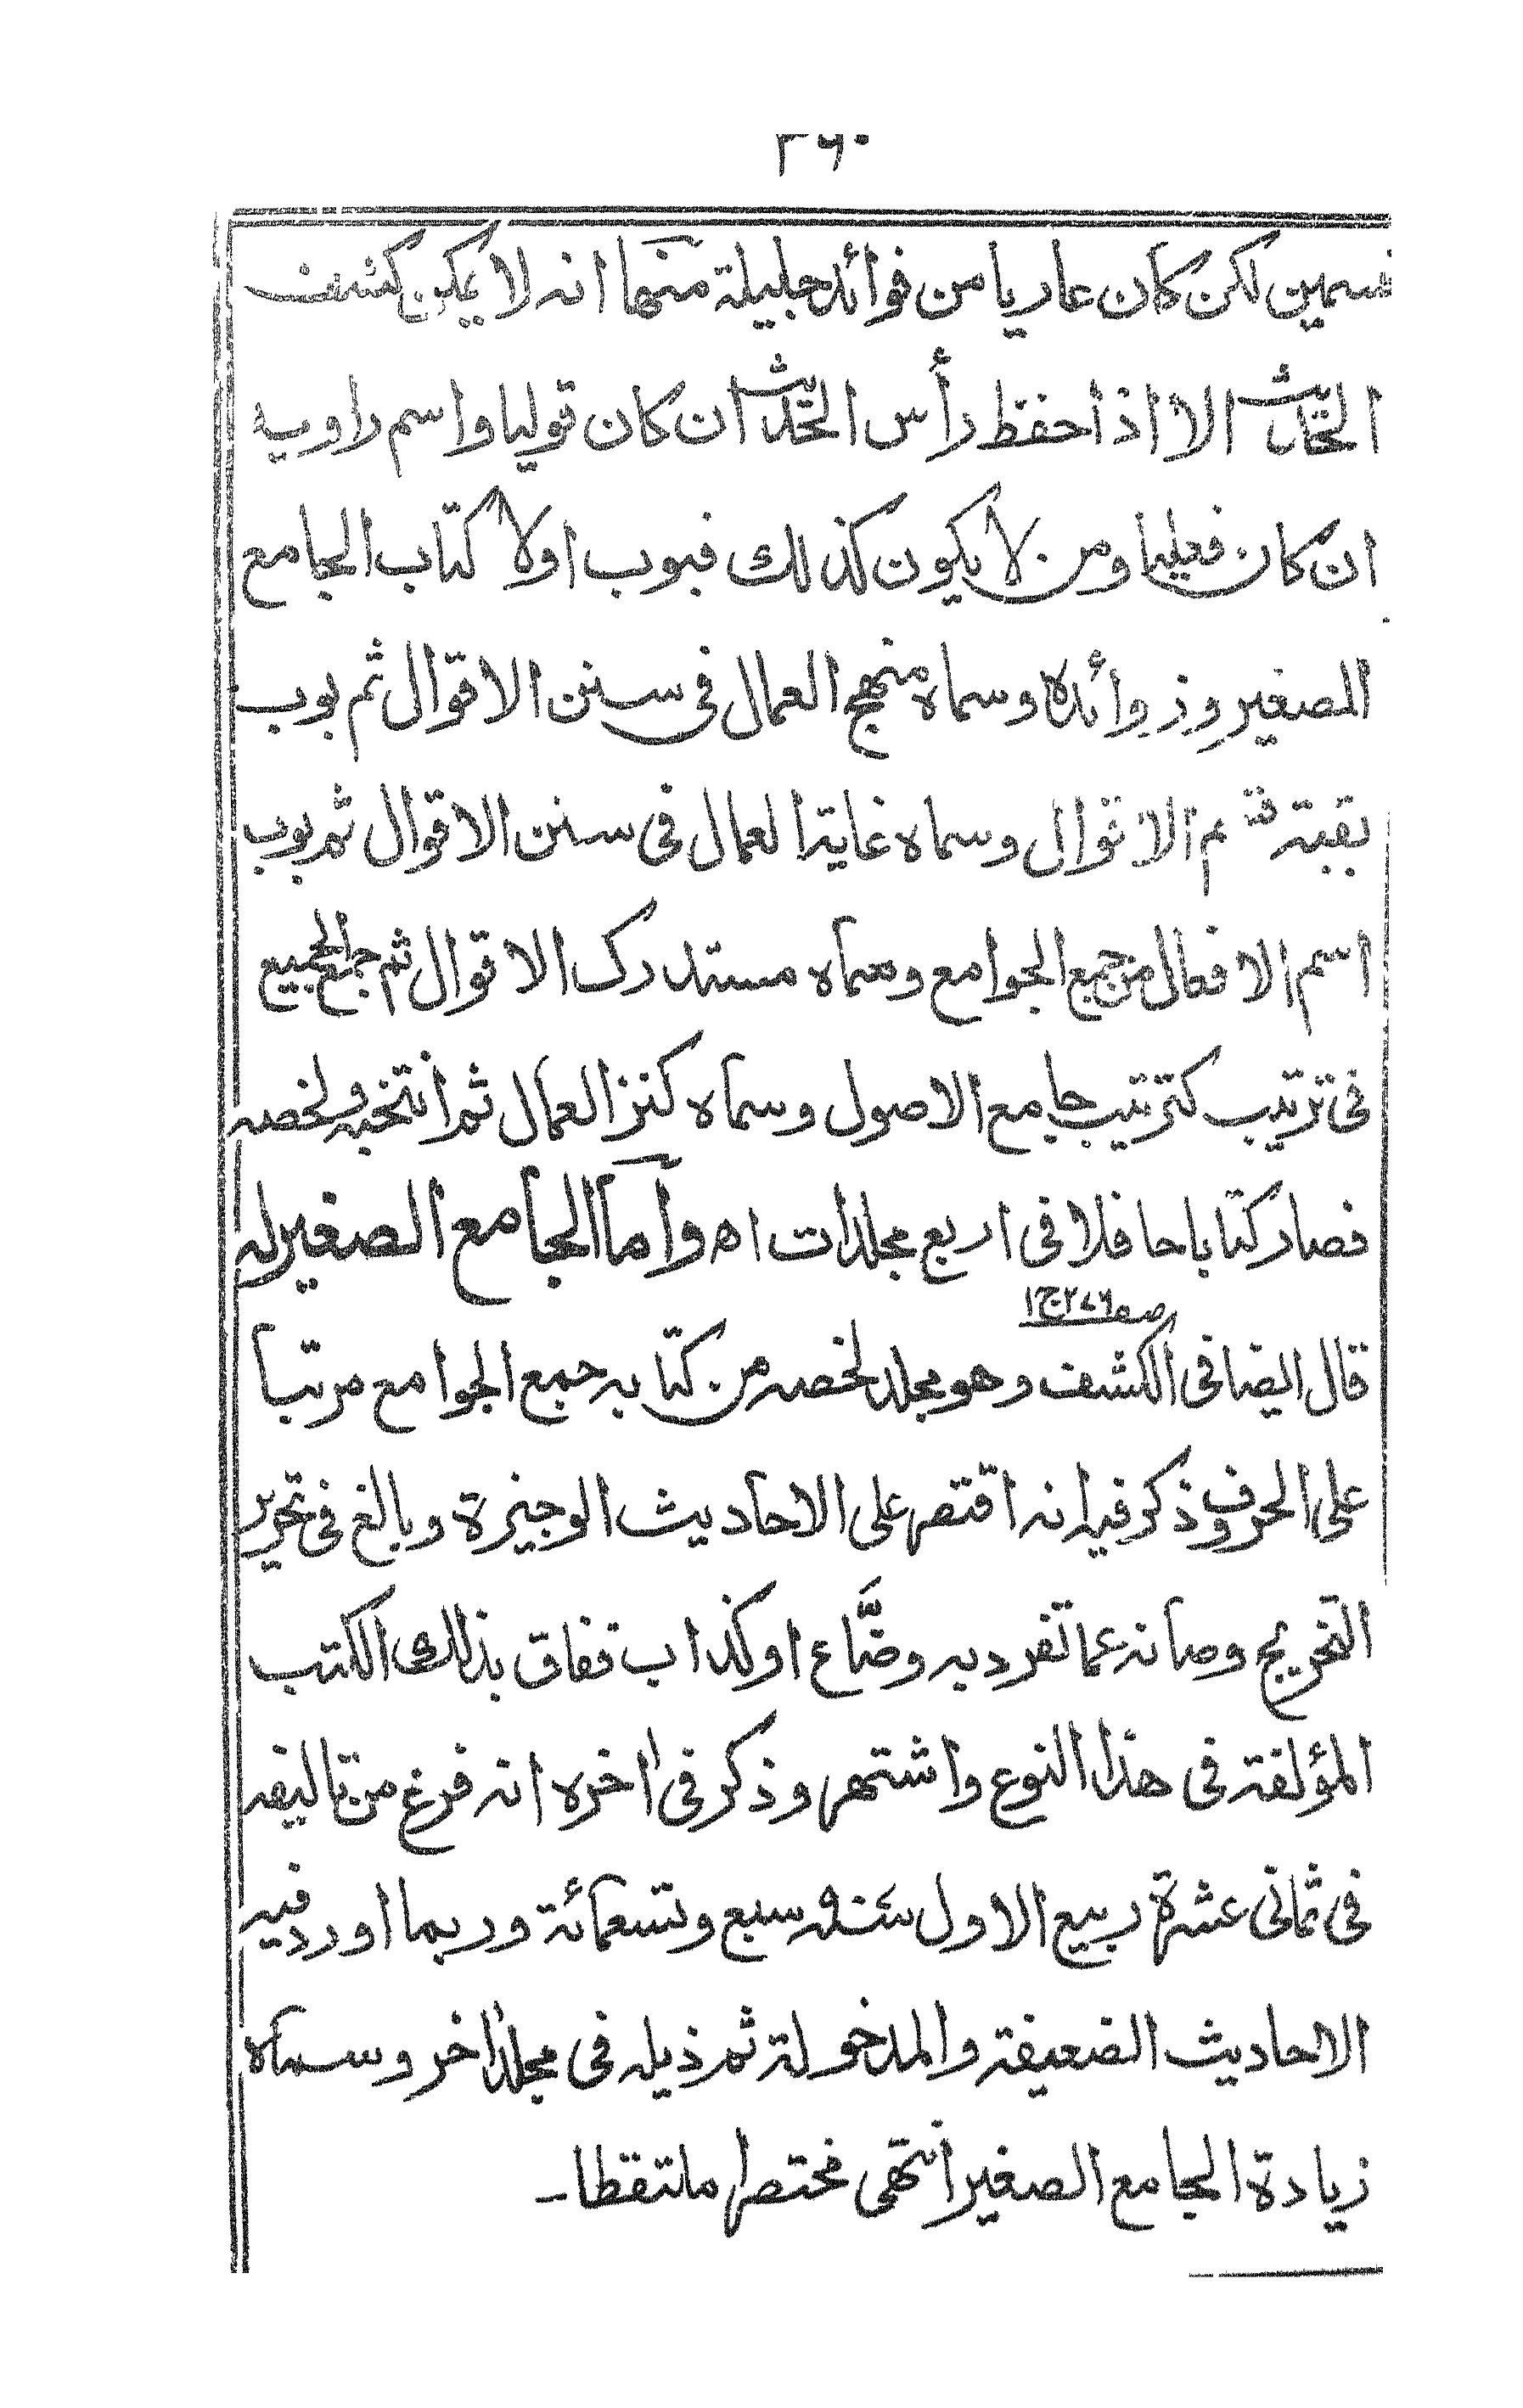 ٣٦٠
قسمين لكن كان عاريا من فوائد جليلة منها انه لا يمكن كشف
الحديث الا اذا حفظ رأس الحديث ان كان قوليا واسم راويه
ان كان فعليا ومن لا يكون كذلك فبوب اولا كتاب الجامع
الصغير وزوائده وسماه منهج العمال فى سنن الاقوال ثم بوب
بقية قسم الاقوال وسماه غاية العمال فى سنن الاقوال ثم بوب
اسم الافعال من جمع الجوامع وسماه مستدرك الاقوال ثم جمع الجميع
فى ترتيب كترتيب جامع الاصول وسماه كنز العمال ثم انتخبه ولخصه
فصار كتابا حافلا فى اربع مجلدات اه واما الجامع الصغير له
صه ٢٧٦ ج ١
قال ايضا فى الكشف وهو مجلد لخصه من كتابه جمع الجوامع مرتبا
على الحروف وذكر فيه انه اقتصر على الاحاديث الوجيزة وبالغ فى تحرير
التخريج وصانه عما تفرد به وضّاع او كذاب ففاق بذلك الكتب
المؤلفة فى هذا النوع واشتهر وذكر فى اخره انه فرغ من تاليفه
فى ثمانى عشرة ربيع الاول سنه سبع وتسعمائة وربما اورد فيه
الاحاديث الضعيفة والمدخولة ثم ذيله فى مجلد اخر وسماه
زيادة الجامع الصغير انتهى مختصرا ملتقطا۔